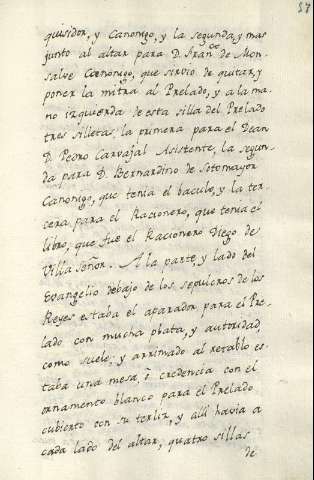 57
quisidor, y Canonigo, y la segunda, y mas
junto al altar para D. Fran.co de Mon-
salve Canonigo, que sirvio de quitar, y
poner la mitra al Prelado, y a la ma-
no izquierda de esta silla del Prelado
tres silletas, la primera para el Dean
D. Pedro Carvajal Asistente, la segun-
da para D. Bernardino de Sotomayor
Canonigo, que tenia el baculo, y la ter-
cera para el Racionero, que tenia el
libro, que fue el Racionero Diego de
Villa Señor. A la parte, y lado del
Evangelio debajo de los sepulcros de los
Reyes estaba el aparador para el Pre-
lado con mucha plata, y autoridad,
como suele; y arrimado al retablo es-
taba una mesa, ō credencia con el
ornamento blanco para el Prelado
cubierto con su terliz, y allí havia a
cada lado del altar, quatro sillas
de